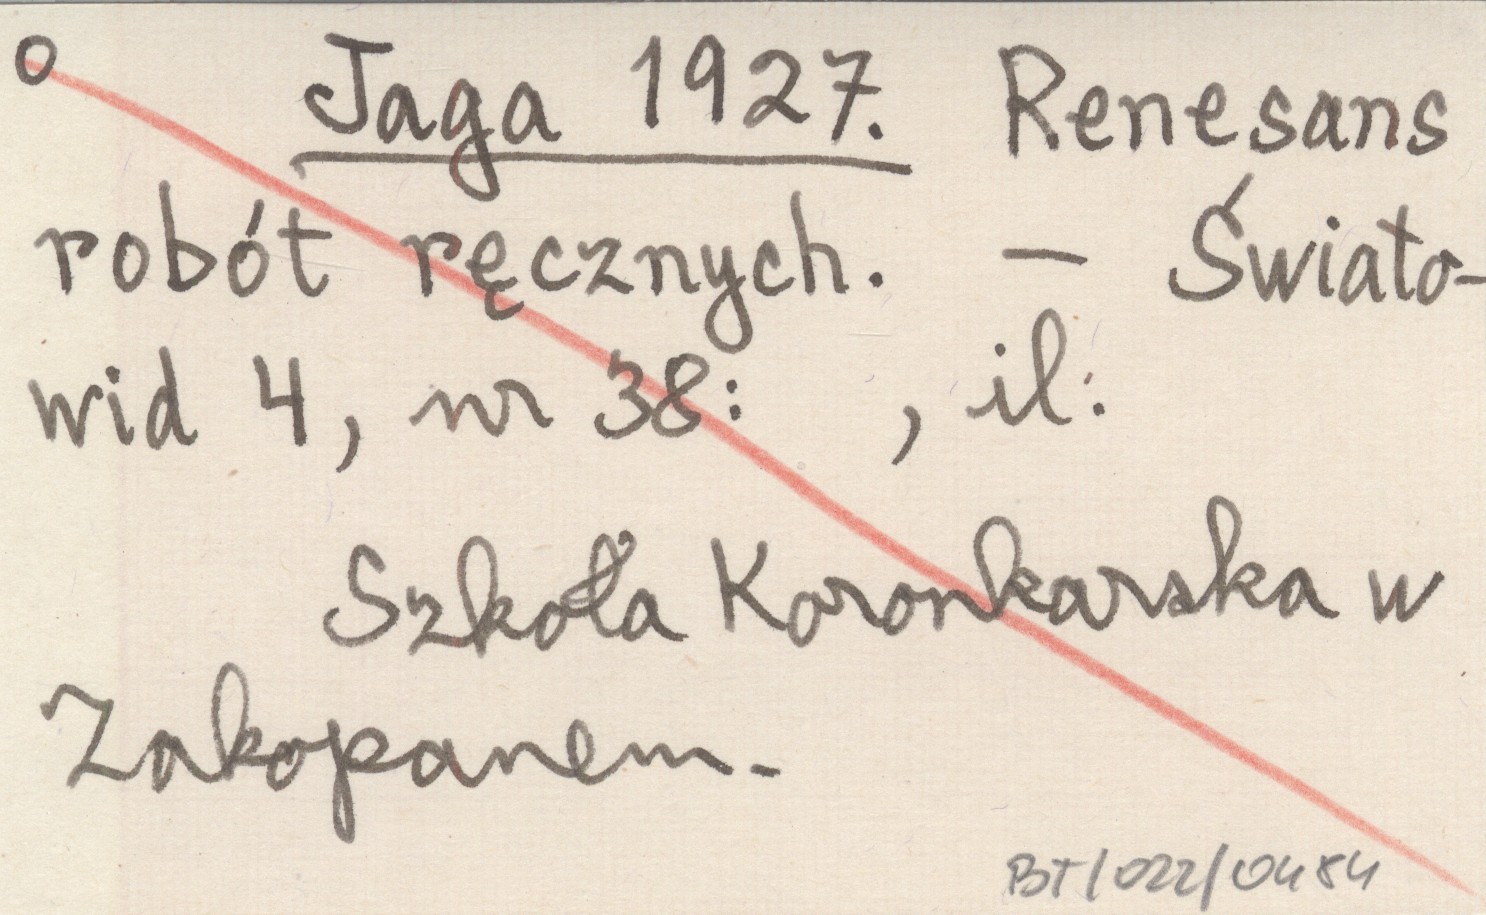 o Jaga 1927. Renesans
robót ręcznych. – Świato-
wid 4, nr 38: , il:
Szkoła Koronkarska w
Zakopanem.
BT/022/0484